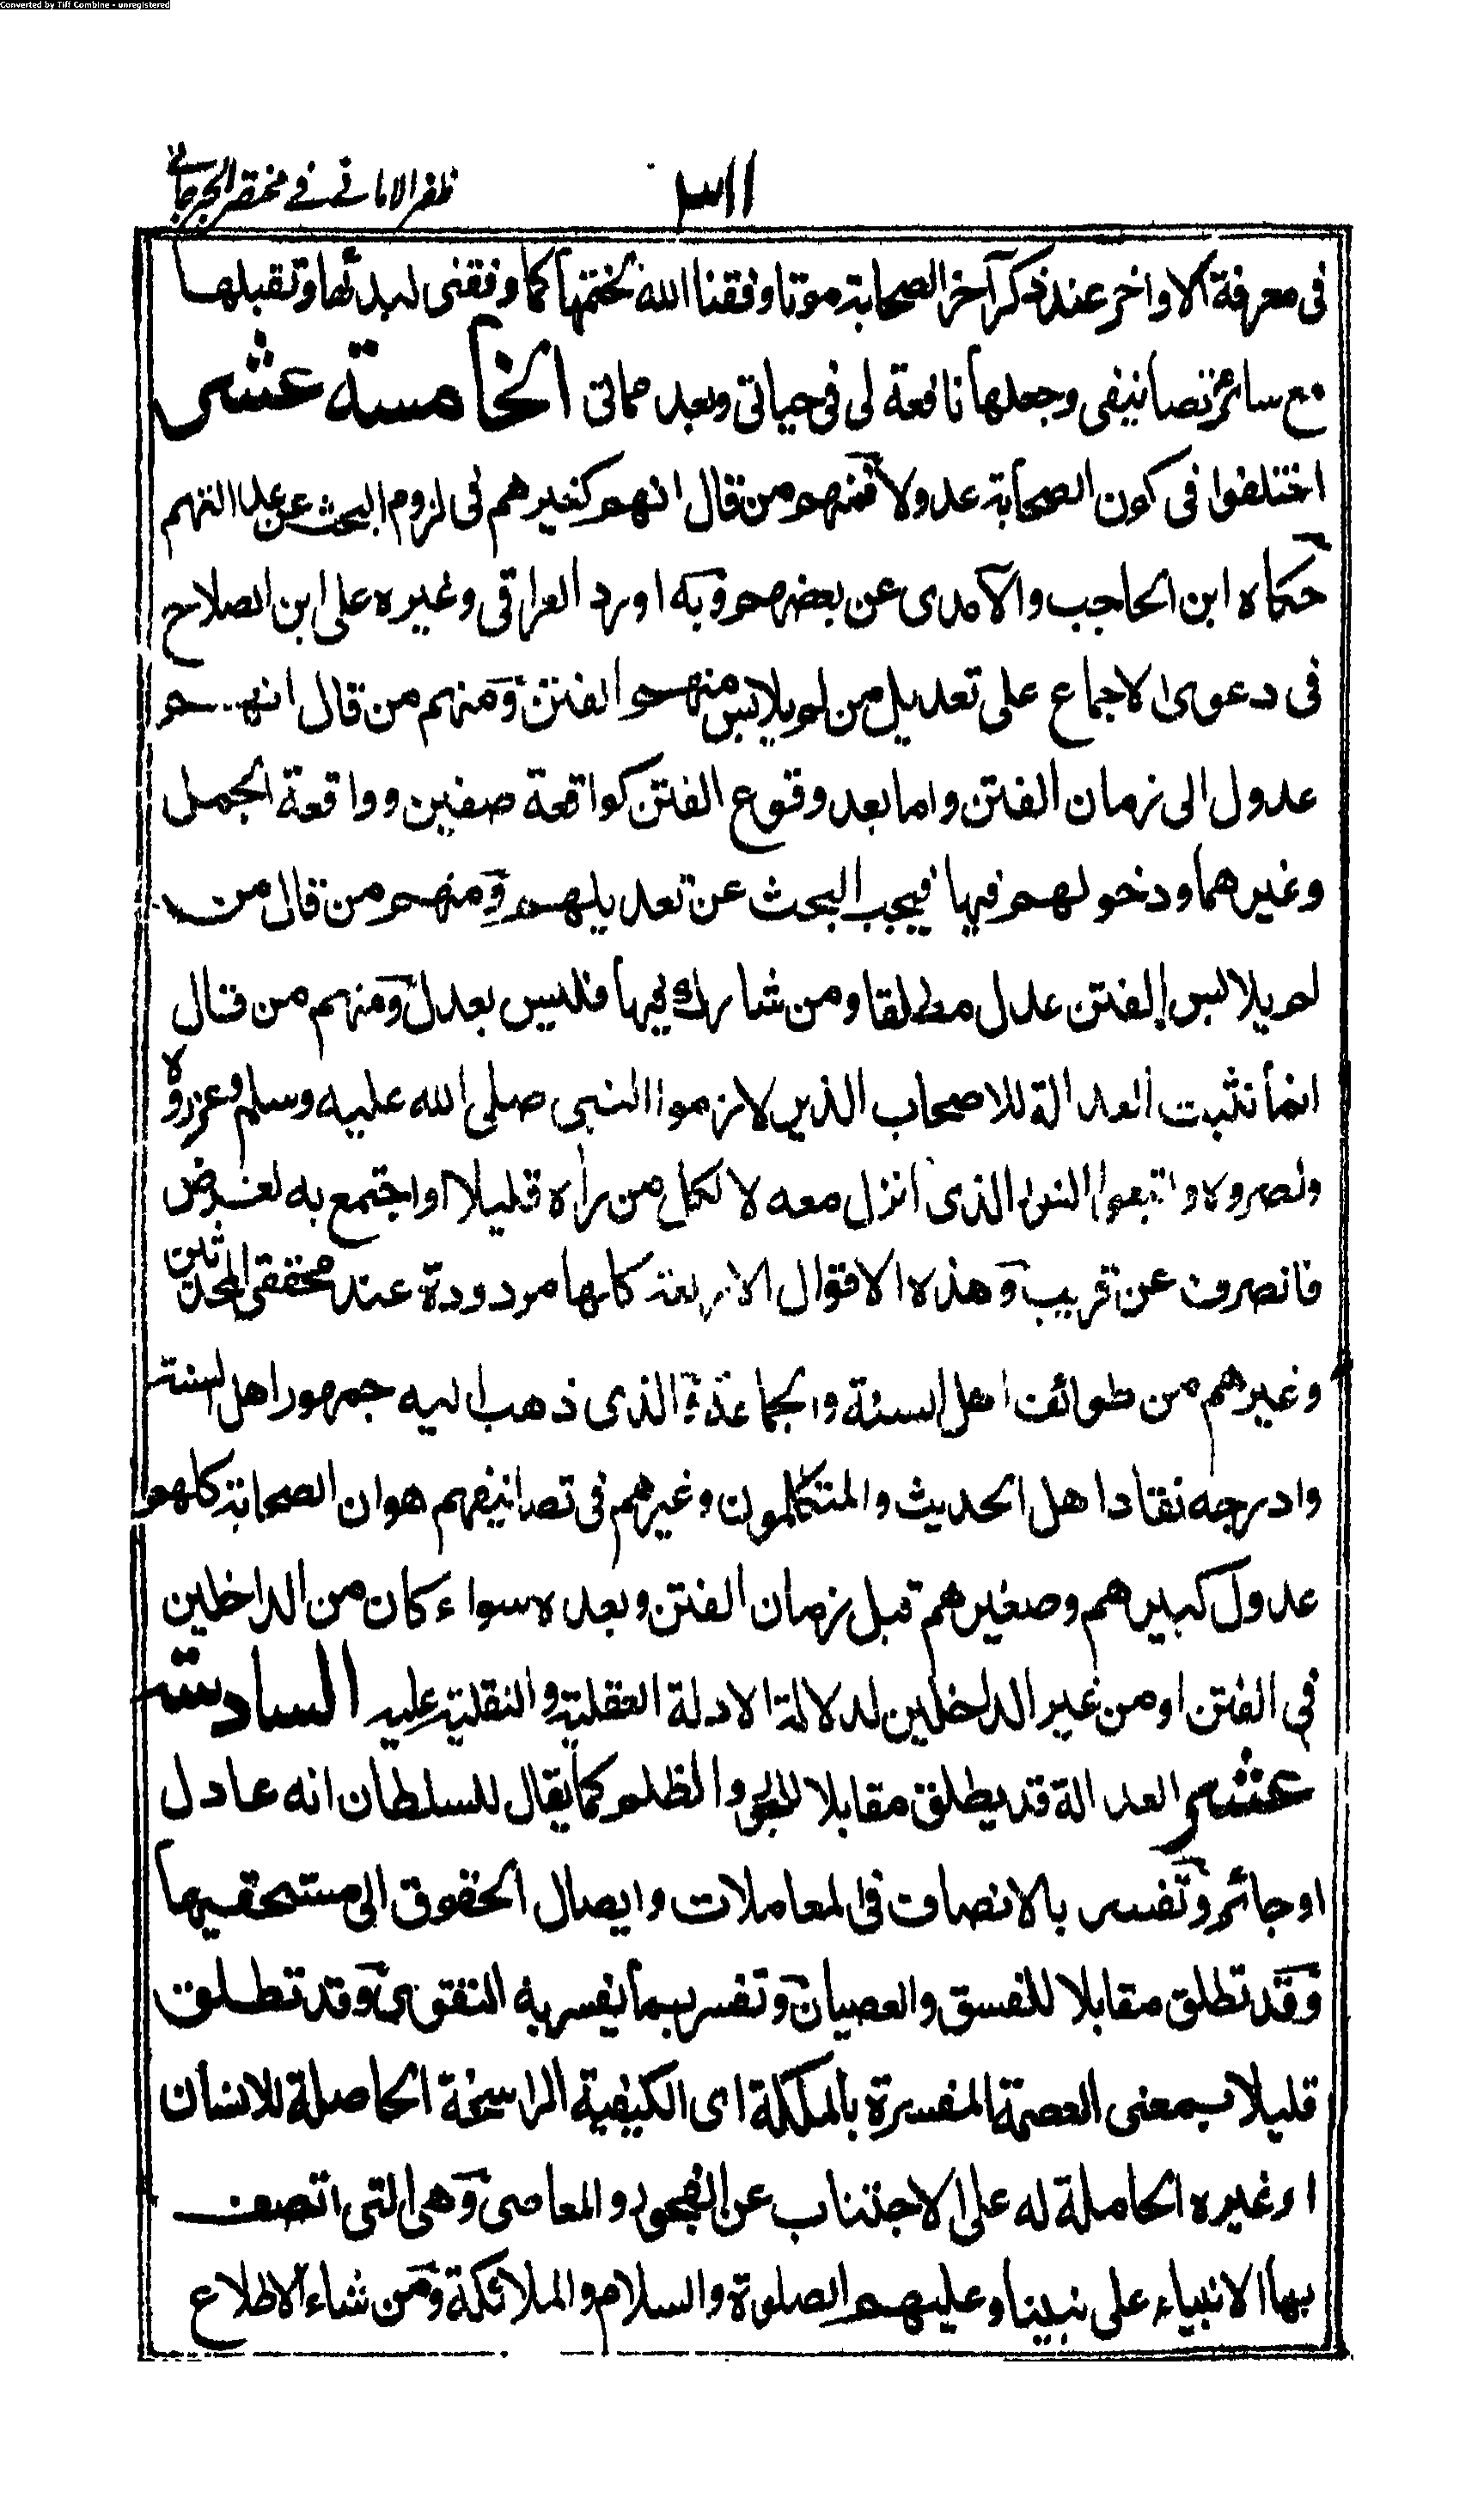 Converted by Tiff Combine - unregistered
٣١١
ظفر الامانے فے مختصر الجرجانے
فى معرفة الاواخر عند ذكر آخر الصحابة موتا وفقنا الله لختمها كما وفقنى لبدئها وتقبلها
مع سائر تصانيفى وجعلها نافعة لى فى حياتى وبعد مماتى الخامسة عشر
اختلفوا فى كون الصحابة عدولا فمنهم من قال انهم كغيرهم فى لزوم البحث عن عدالتهم
حكاه ابن الحاجب والآمدى عن بعضهم وبه اورد العراقى وغيره على ابن الصلاح
فى دعوى الاجماع على تعديل من لم يلابس منهم الفتن ومنهم من قال انهم
عدول الى زمان الفتن واما بعد وقوع الفتن كواقعة صفين وواقعة الجمل
وغيرهما ودخولهم فيها فيجب البحث عن تعديلهم ومنهم من قال من
لم يلابس الفتن عدل مطلقا ومن شارك فيها فليس بعدل ومنهم من قال
انما تثبت العدالة للاصحاب الذين لازموا النبى صلى الله عليه وسلم وعزروه
ونصروه واتبعوا النور الذى انزل معه لا لكل من رأه قليلا او اجتمع به لغرض
فانصرف عن قريب وهذه الاقوال الاربعة كلها مردودة عند محققى المحدثين
وغيرهم من طوائف اهل السنة والجماعة والذى ذهب اليه جمهور اهل السنة
وادرجه نقاد اهل الحديث والمتكلمون وغيرهم فى تصانيفهم هو ان الصحابة كلهم
عدول كبيرهم وصغيرهم قبل زمان الفتن وبعده سواء كان من الداخلين
فى الفتن او من غير الداخلين لدلالة الادلة العقلية والنقلية عليه السادسة
عشر العدالة قد يطلق مقابلا للجور والظلم كما يقال للسلطان انه عادل
او جائر وتفسر بالانصاف فى المعاملات وايصال الحقوق الى مستحقيها
وقد تطلق مقابلا للفسق والعصيان وتفسر بما يفسر به التقوى وقد تطلق
قليلا بمعنى العصمة المفسرة بالملكة اى الكيفية الراسخة الحاصلة للانسان
او غيره الحاملة له على الاجتناب عن الفجور والمعاصى وهى التى اتصف
بها الانبياء على نبينا وعليهم الصلوة والسلام والملائكة ومن شاء الاطلاع